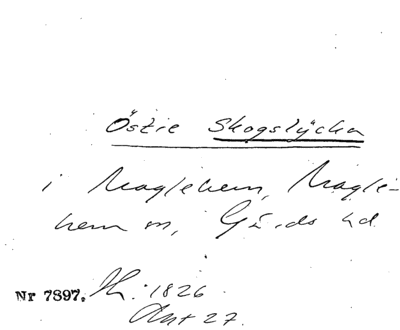 Östre Skogslyckan
i Maglehem, Magle-
hem sn, Gärds hd
Nr 7897. Lh: 1826
Akt 27.